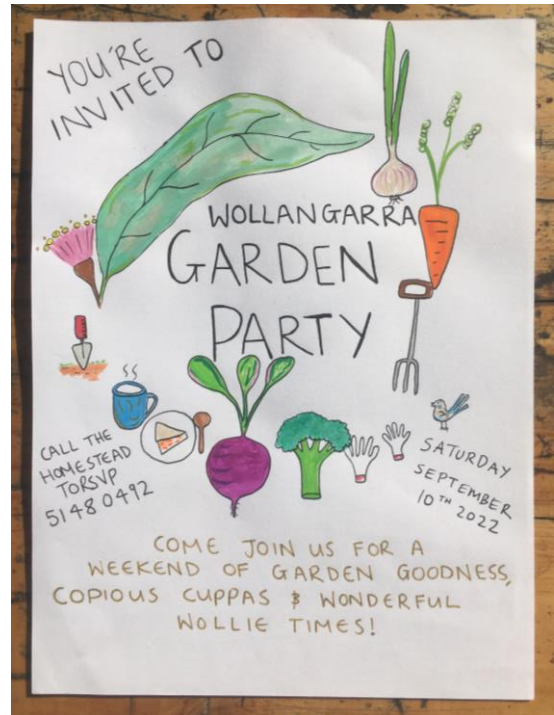 YOU'RE
INVITED TO
WOLLANGARRA
GARDEN
PARTY
CALL THE
HOMESTEAD
TO RSVP
5148 0492
SATURDAY
SEPTEMBER
10TH 2022
COME JOIN US FOR A
WEEKEND OF GARDEN GOODNESS,
COPIOUS CUPPAS & WONDERFUL
WOLLIE TIMES!